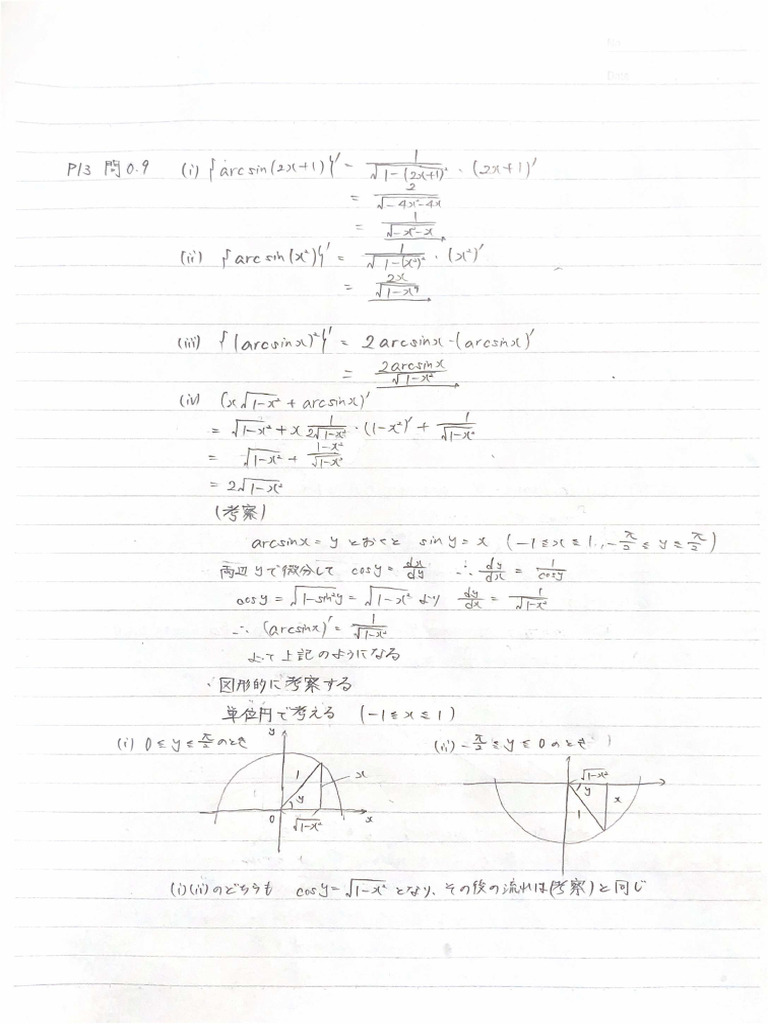 No.
Date
P13 問0.9 (i) {arcsin(2x+1)}' = 1/√(1-(2x+1)²) ・ (2x+1)'
= 2/√(-4x²-4x)
= 1/√(-x²-x)
(ii) {arcsin(x²)}' = 1/√(1-(x²)²) ・ (x²)'
= 2x/√(1-x⁴)
(iii) {(arcsinx)²}' = 2arcsinx・(arcsinx)'
= 2arcsinx/√(1-x²)
(iv) (x√(1-x²) + arcsinx)'
= √(1-x²) + x 1/(2√(1-x²)) ・(1-x²)' + 1/√(1-x²)
= √(1-x²) + (1-x²)/√(1-x²)
= 2√(1-x²)
(考察)
arcsinx = y とおくと siny = x (-1≦x≦1, -π/2≦y≦π/2)
両辺yで微分して cosy = dx/dy ∴ dy/dx = 1/cosy
cosy = √(1-sin²y) = √(1-x²) より dy/dx = 1/√(1-x²)
∴ (arcsinx)' = 1/√(1-x²)
よって上記のようになる
・図形的に考察する
単位円で考える (-1≦x≦1)
(i) 0≦y≦π/2のとき
(ii) -π/2≦y≦0のとき
y
1
x
y
0
√(1-x²)
x
√(1-x²)
y
x
1
(i)(ii)のどちらも cosy = √(1-x²) となり、その後の流れは(考察)と同じ